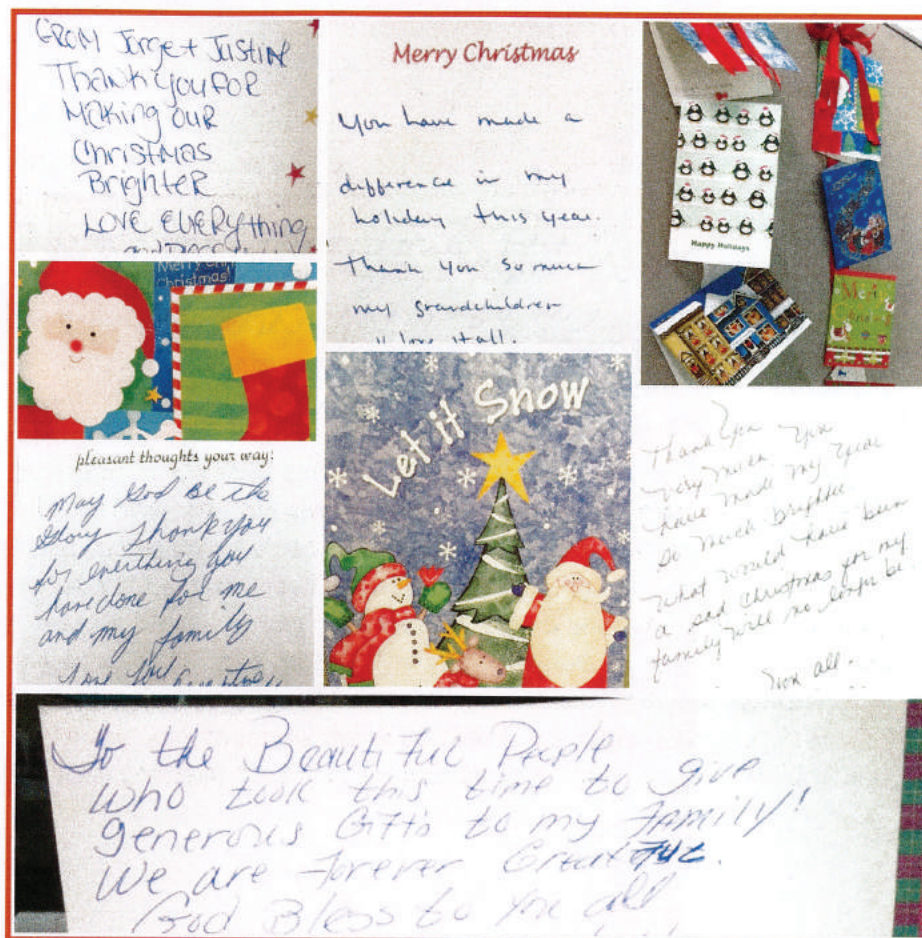 FROM Jorge + Justine
Thank you FOR
Making our
Christmas
Brighter
LOVE EVERYthing
Merry Christmas
You have made a
difference in my
holiday this year.
Thank you so much
my grandchildren
love it all.
Happy Holidays
Merry Christmas!
pleasant thoughts your way:
May God Be the
Glory Thank you
for everthing you
have done for me
and my family
Let it Snow
Thank You
very much You
have made my year
so much brighter
What would have been
a sad christmas for my
family will no longer be.
all.
To the Beautiful People
who took this time to give
generous Gifts to my Family!
We are Forever Greatful.
God Bless to you all